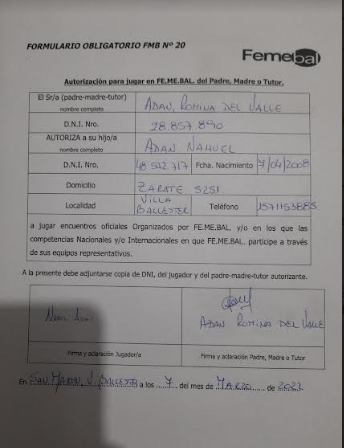 FORMULARIO OBLIGATORIO FMB Nº 20
Femebal
Autorización para jugar en FE.ME.BAL. del Padre, Madre o Tutor.
El Sr/a (padre-madre-tutor)
nombre completo
ADAN, ROMINA DEL VALLE
D.N.I. Nro.
28.857.890
AUTORIZA a su hijo/a
nombre completo
ADAN NAHUEL
D.N.I. Nro.
48.512.717
Fcha. Nacimiento
7/04/2008
Domicilio
ZARATE 5251
Localidad
VILLA
BALLESTER
Teléfono
1571153885
a jugar encuentros oficiales Organizados por FE.ME.BAL. y/o en los que las
competencias Nacionales y/o Internacionales en que FE.ME.BAL. participe a través
de sus equipos representativos.
A la presente debe adjuntarse copia de DNI, del jugador y del padre-madre-tutor autorizante.
ADAN ROMINA DEL VALLE
Firma y aclaración Jugador/a
Firma y aclaración Padre, Madre o Tutor
En SAN MARTIN, V. BALLESTER a los 7 del mes de MARZO de 2022